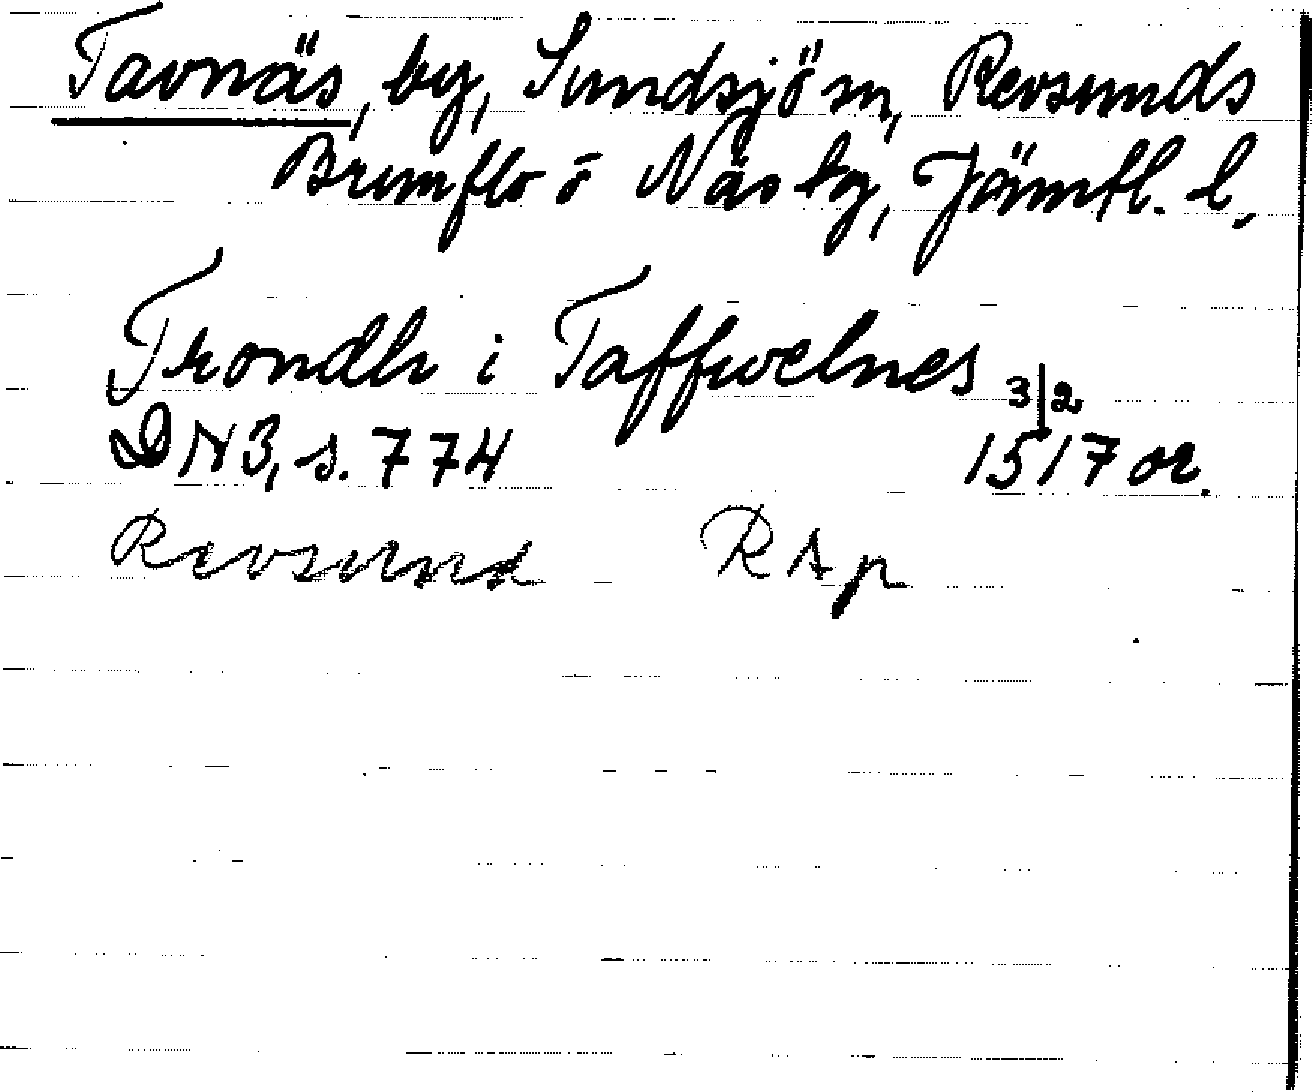 Tavnäs, by, Sundsjö sn, Revsunds
Brunflo o Näs tg, Jämtl. l.
Trondh i Taffwelnes 3/2
DN 3, s. 774 1517 or.
Revsund RAp